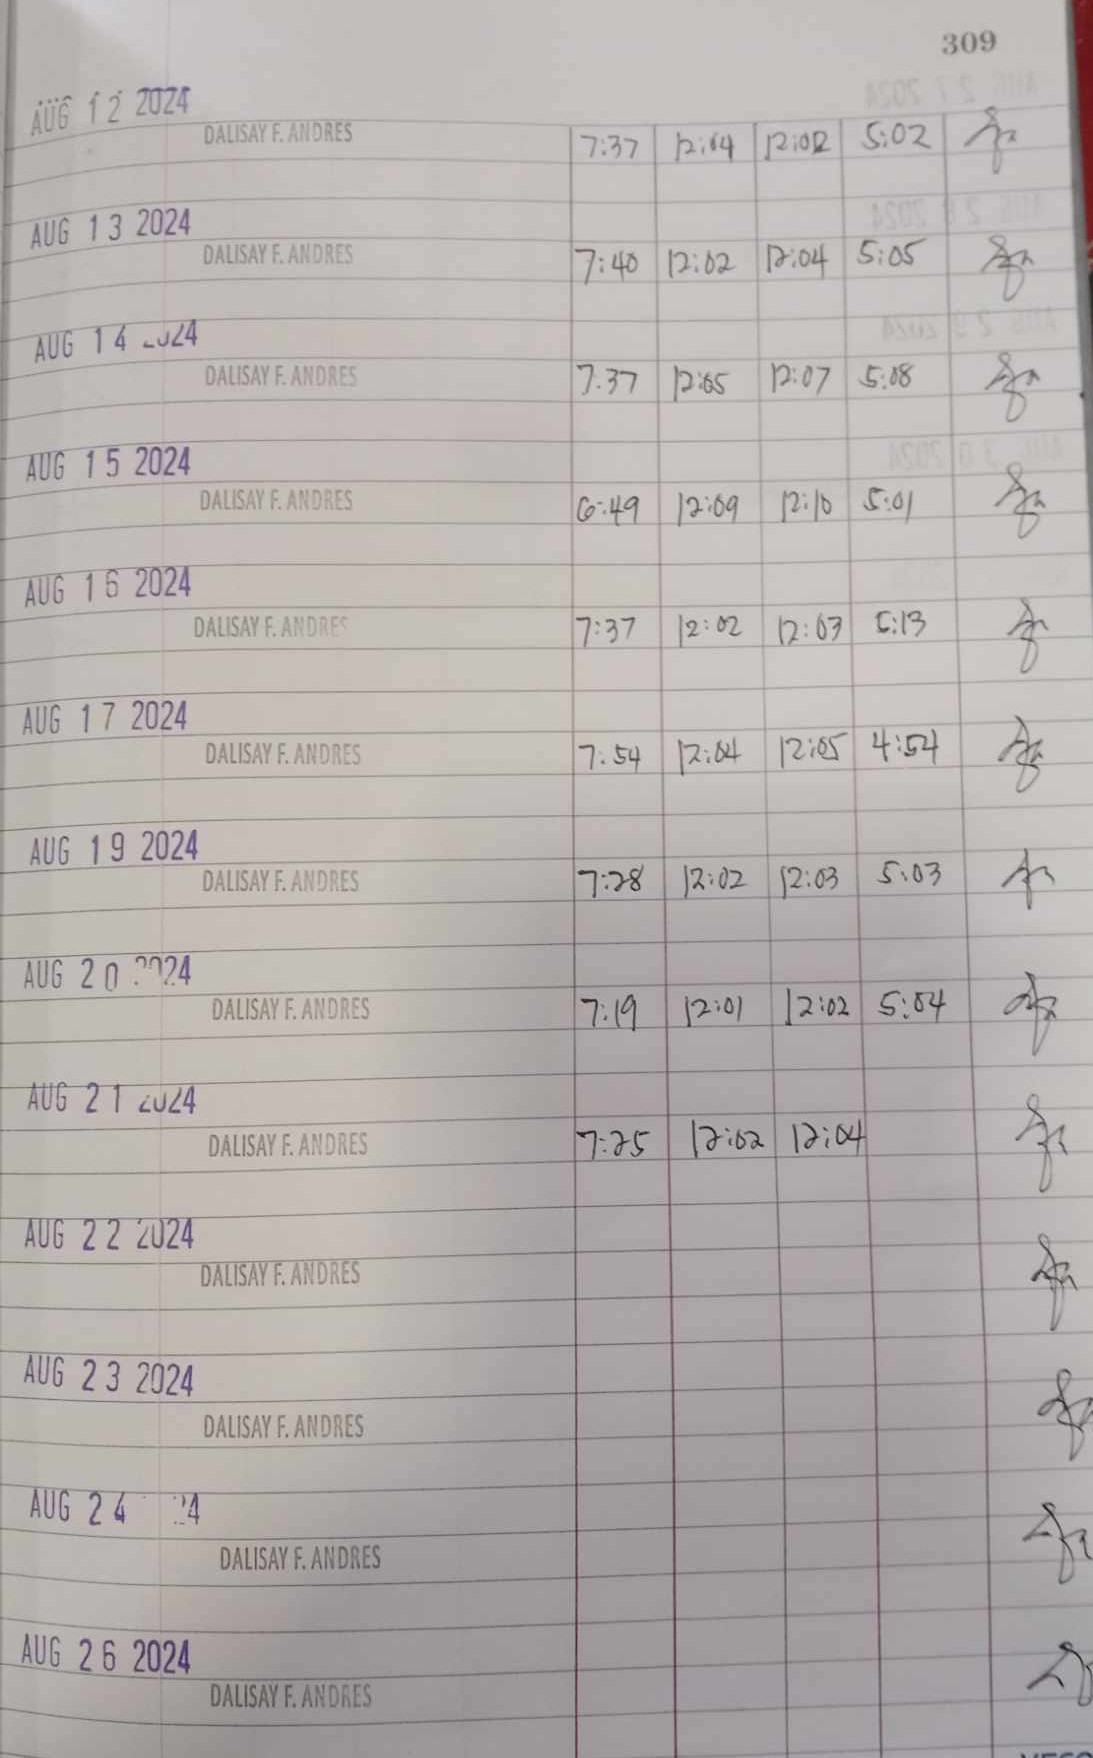 309
AUG 12 2024
DALISAY F. ANDRES 7:37 12:04 12:02 5:02
AUG 13 2024
DALISAY F. ANDRES 7:40 12:02 12:04 5:05
AUG 14 2024
DALISAY F. ANDRES 7:37 12:05 12:07 5:08
AUG 15 2024
DALISAY F. ANDRES 6:49 12:09 12:10 5:01
AUG 16 2024
DALISAY F. ANDRES 7:37 12:02 12:03 5:13
AUG 17 2024
DALISAY F. ANDRES 7:54 12:04 12:05 4:54
AUG 19 2024
DALISAY F. ANDRES 7:28 12:02 12:03 5:03
AUG 20 2024
DALISAY F. ANDRES 7:19 12:01 12:02 5:04
AUG 21 2024
DALISAY F. ANDRES 7:25 12:02 12:04
AUG 22 2024
DALISAY F. ANDRES
AUG 23 2024
DALISAY F. ANDRES
AUG 24 24
DALISAY F. ANDRES
AUG 26 2024
DALISAY F. ANDRES